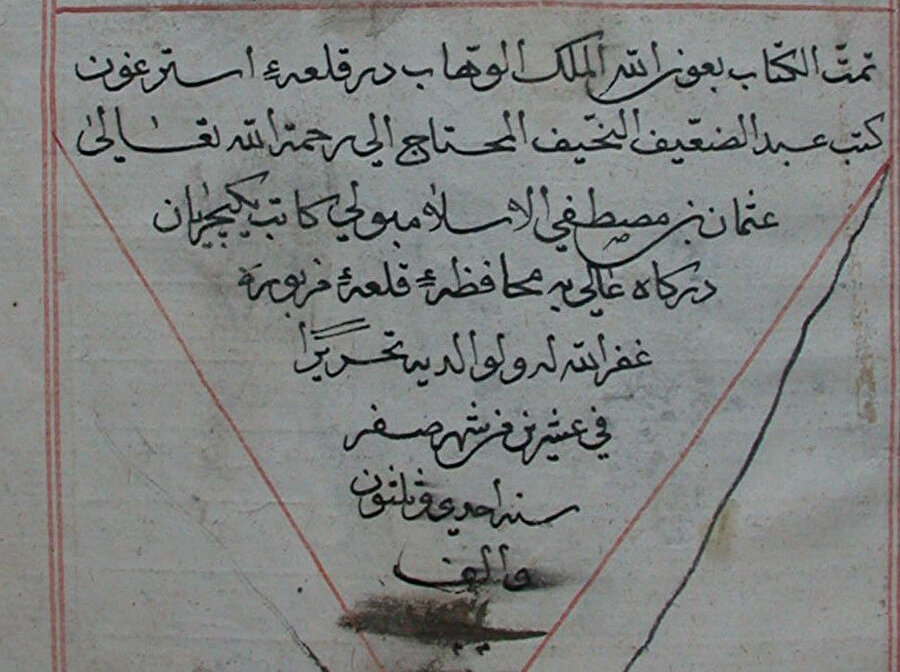 تمت الكتاب بعون الله الملك الوهاب در قلعهٔ استرغون
كتب عبد الضعيف النحيف المحتاج الي رحمة الله تعالىٰ
عثمان بن مصطفي الاسلامبولي كاتب يكيچريان
دركاه عالي به محافظهٔ قلعهٔ مزبورة
غفر الله له ولوالديه تحريرًا
في عشرين من شهر صفر
سنه احدي وثلثون
والف